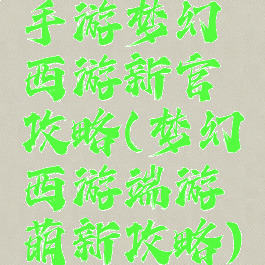 手游梦幻
西游新官
攻略(梦幻
西游端游
萌新攻略)